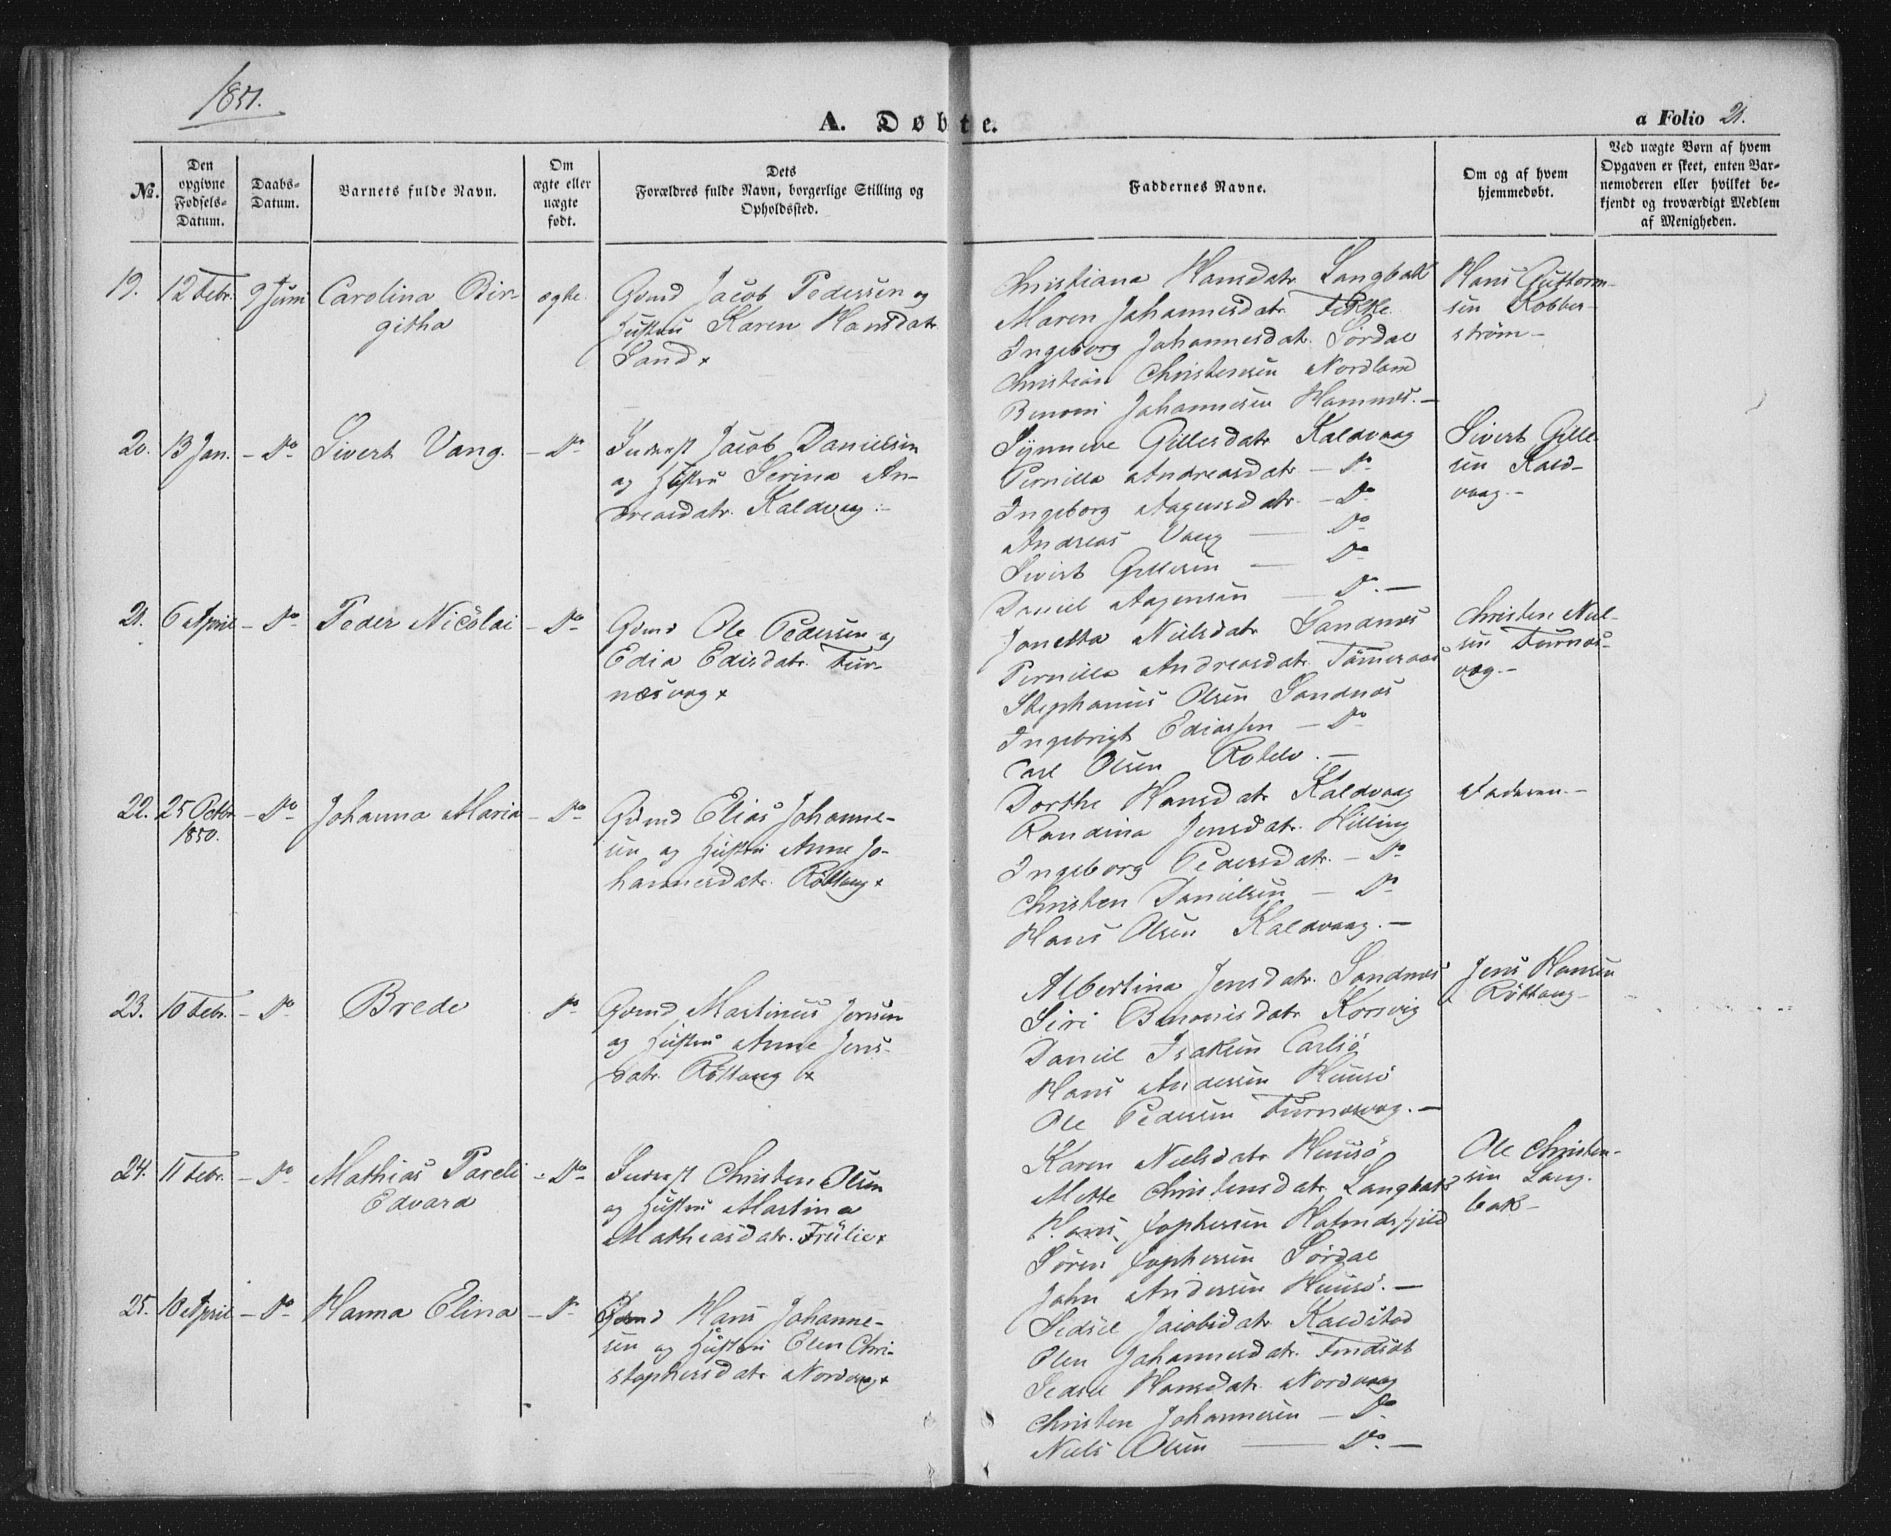 1851.
A. Døbte.
a Folio 21.
No.
Den opgivne Fødsels-Datum.
Daabs-Datum.
Barnets fulde Navn.
Om ægte eller uægte født.
Dets Forældres fulde Navn, borgerlige Stilling og Opholdssted.
Faddernes Navne.
Om og af hvem hjemmedøbt.
Ved uægte Børn af hvem Opgaven er skeet, enten Barnemoderen eller hvilket bekjendt og troværdigt Medlem af Menigheden.
19. 12 Febr. 9 Juni Carolina Bir-
githa
ægte.
Gmd Jacob Pedersen og
Hustru Karen Hansdatr
Sand
Christiana Hansdatr Langbak
Maren Johannesdatr
Ingeborg Johannesdatr. Sørdal
Christian Christensen Nordland
Benoni Johannesen Hamnes. –
Hans Guttorm-
sen Kobber-
strøm –
20. 13 Jan. – Do Sivert Vang. – Do
Inderst Jacob Danielsen
og Hustru Serina An-
dreasdatr. Kaldvag
Synneve Gillesdatr Kaldvaag
Pernilla Andreasdatr – Do
Ingeborg Aagensdatr. – Do
Andreas Vang – Do
Sivert Gillesen – Do
Daniel Aagensen – Do. –
Sivert Gille-
sen Kald-
vaag. –
21. 6 April – Do Peder Nicolai – Do
Gmd Ole Pedersen og
Edia Edisdatr. Fur-
næsvag
Jonetta Nielsdatr Sandnæs
Pernilla Andreasdatr Tømeraas
Stephanus Olsen Sandnæs
Ingebrigt Ediassen – Do
Carl Olsen
Christen Niel-
sen Furnæs-
vag. –
22. 25 Octbr
1850.
– Do Johanna Maria – Do
Gmd Elias Johanne-
sen og Hustru Anne Jo-
hannesdatr. Røttang
Dorthe Hansdatr Kaldvaag
Randina Jensdatr. Helling
Ingeborg Pedersdatr. – Do
Christen Danielsen – Do
Hans Olsen Kaldvaag. –
Faderen. –
23. 10 Febr. – Do Brede Do
Gmd Martinus Jensen
og Hustru Anne Jens-
datr. Røttang
Albertina Jensdatr. Sandnæs
Siri Benonisdatr Korsvig
Daniel Isaksen Carlsø
Hans Andersen Huusø
Ole Pedersen Furnæsvag. –
Jens Hansen
Røttang –
24. 11 Febr. – Do Mathias Pareli
Edvard
– Do
Inderst Christen Olsen
og Hustru Martina
Mathiasdatr.
Karen Nielsdatr Huusø
Mette Christensdatr Langbak
Hans Jophersen
Søren Jophersen Sørdal
John Andersen Huusø. –
Ole Christen-
sen Lang-
bak –
25. 10 April – Do Hanna Elina – Do
Gmd Hans Johanne-
sen og Hustru Elen Chri-
stophersdatr Nordvag
Sidsel Jacobsdatr Kaldstad
Elen Johannesdatr.
Sidsel Hansdatr Nordvaag
Christen Johannesen – Do.
Niels Olsen – Do. –